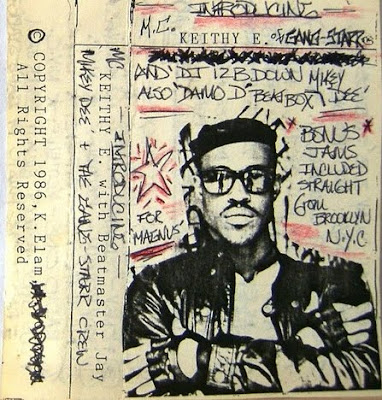 INTRODUCING
M.C. KEITHY E. of GANG-STARR
AND DJ 12B.DOWN MIKEY
ALSO "DAMO D" BEATBOX "DEE"
FOR
MAGNUS
BONUS
JAMS
INCLUDED
STRAIGHT
from
BROOKLYN
N.Y.C
INTRODUCING
MC KEITHY E. with Beatmaster Jay
MIKEY DEE' + THE GANG STARR CREW
© COPYRIGHT 1986, K. Elam
All Rights Reserved